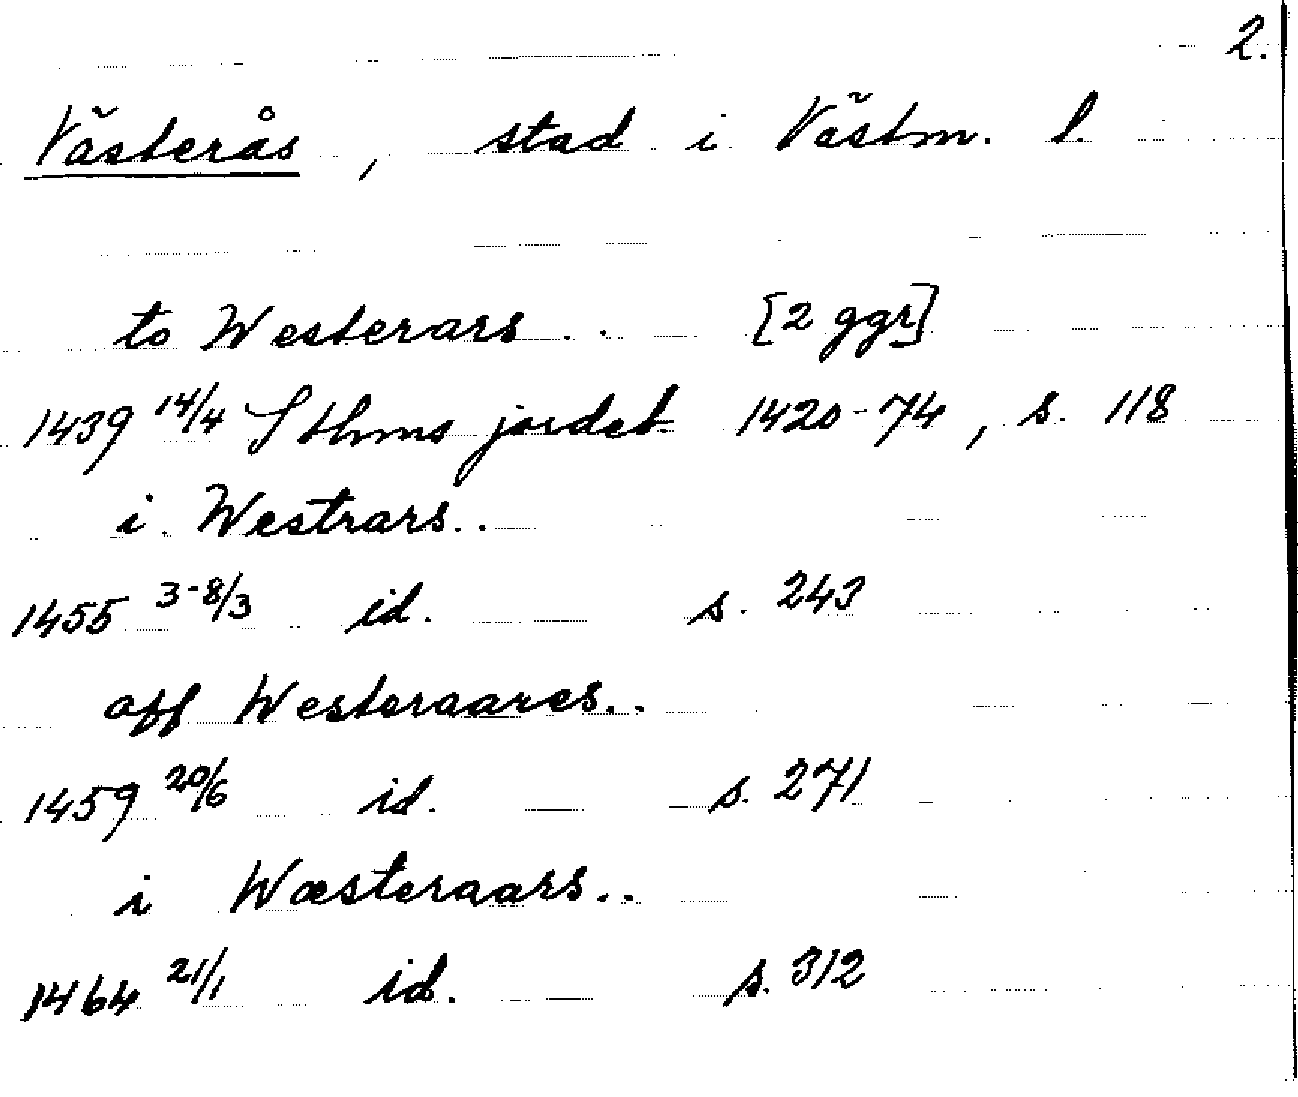 2.
Västerås, stad i Västm. l.
to Westerars.. [2 ggr]
1439 14/4 Sthms jordeb 1420-74, s. 118
i Westrars..
1455 3-8/3 id. s. 243
aff Westeraares..
1459 20/6 id. s. 271
i Wæsteraars..
1464 21/1 id. s. 312